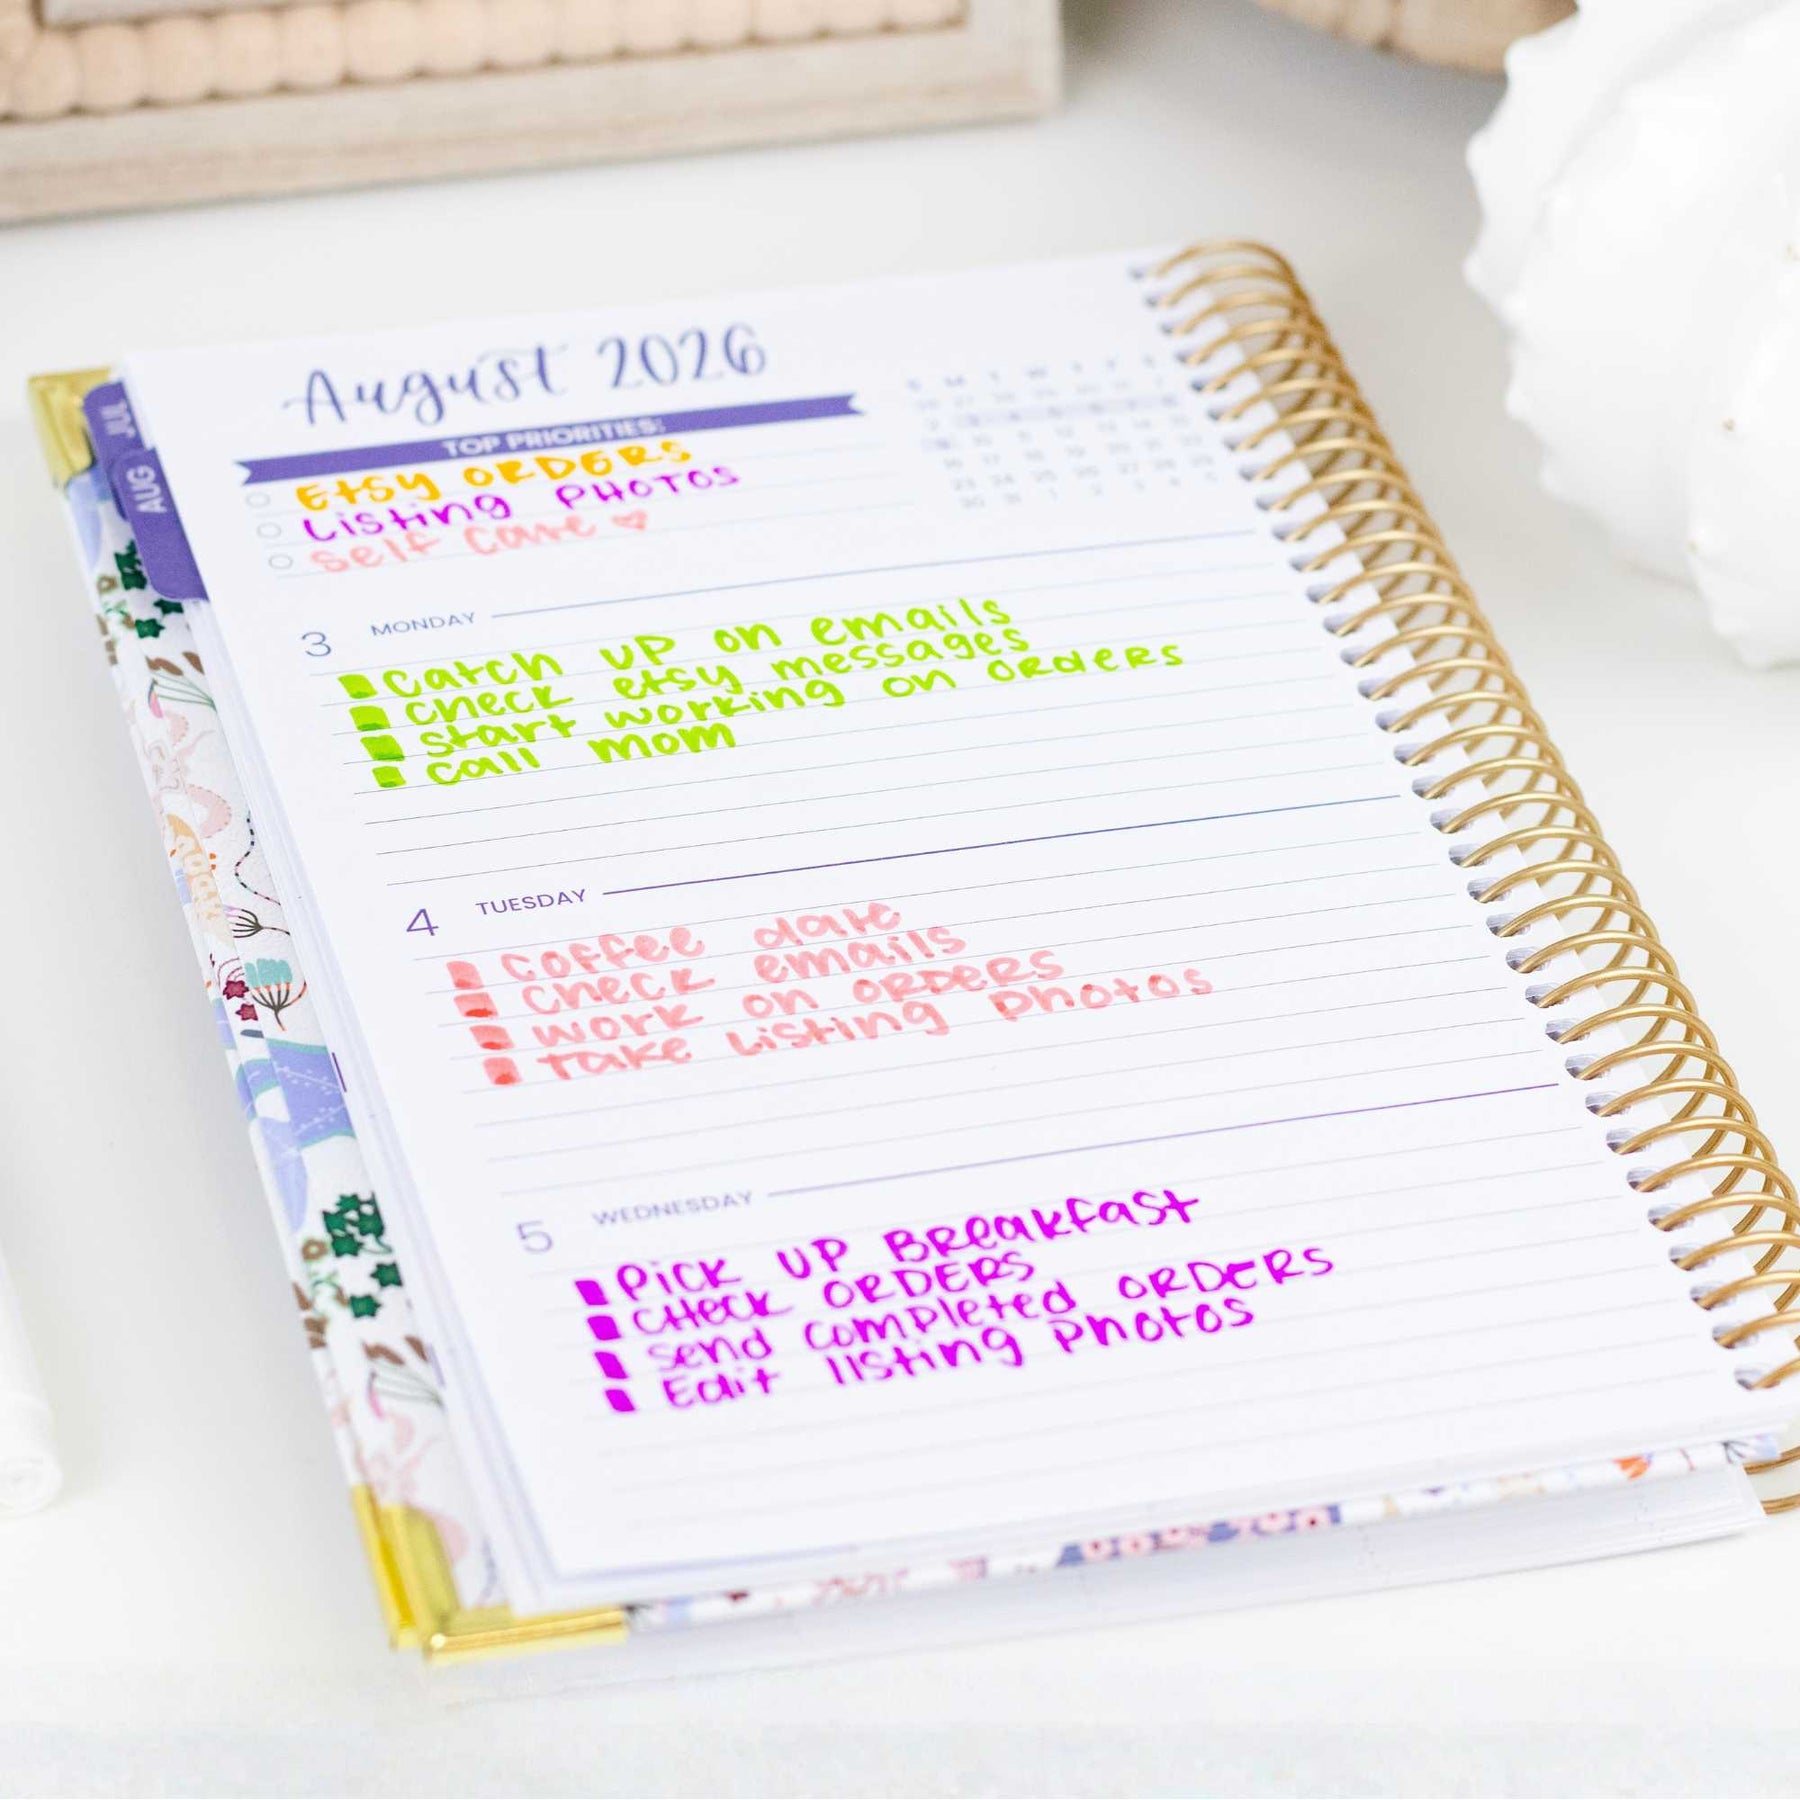 August 2026
TOP PRIORITIES:
Etsy ORDERS
Listing PHOTOS
Self Care
3 MONDAY
Catch UP on emails
Check etsy messages
Start working on orders
Call mom
4 TUESDAY
Coffee date
Check emails
work on ORDERS
Take Listing Photos
5 WEDNESDAY
Pick UP Breakfast
CHeck ORDERS
Send Completed ORDERS
Edit listing Photos
JUL
AUG